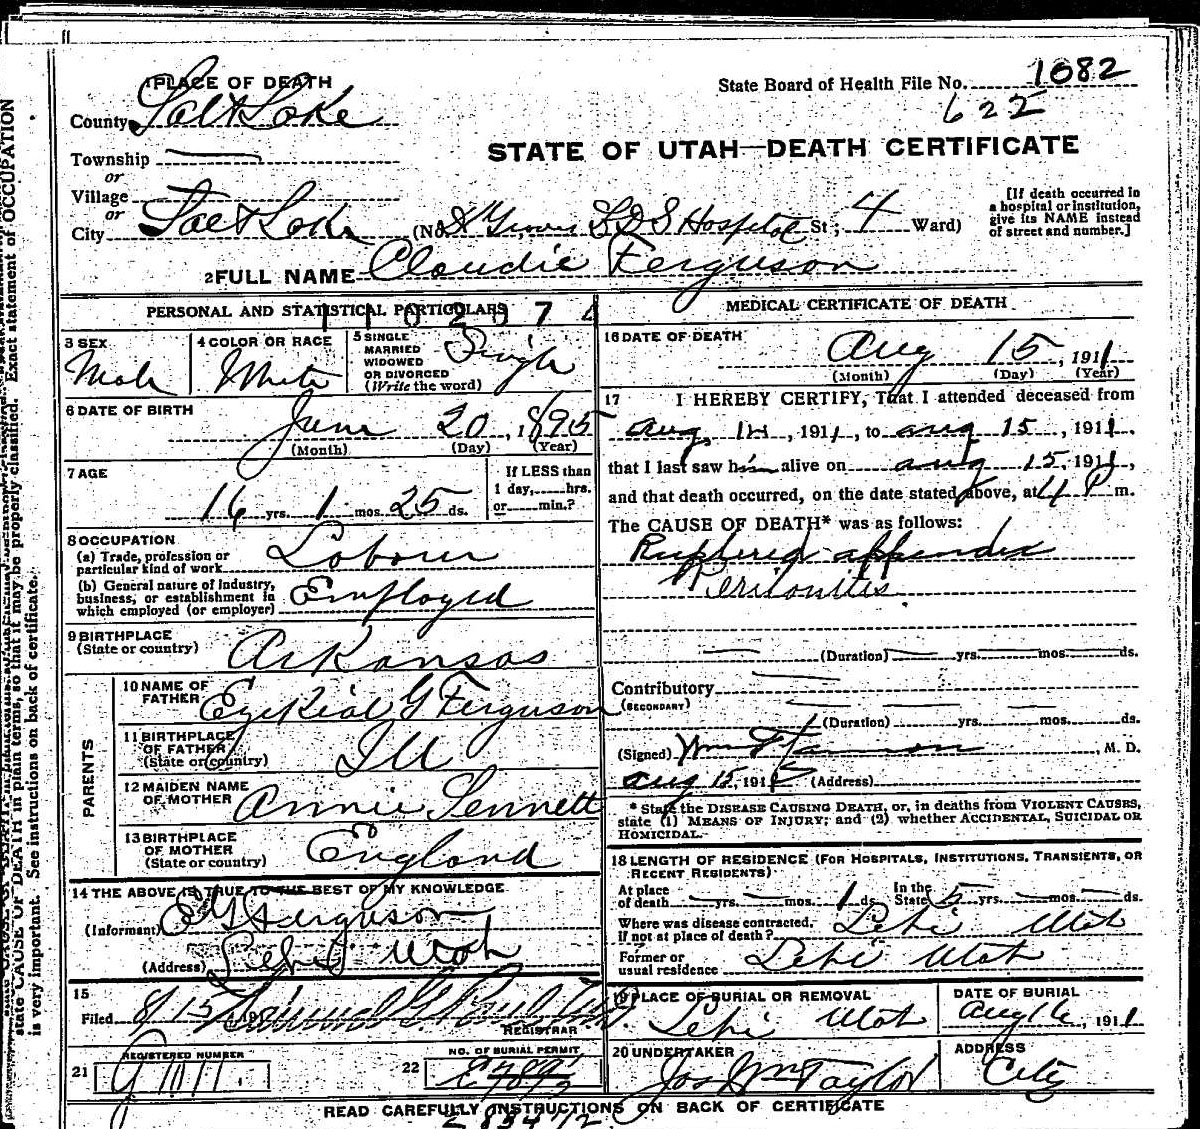 1 PLACE OF DEATH
State Board of Health File No. 1082
622
County Salt Lake
STATE OF UTAH—DEATH CERTIFICATE
Township
or
Village
or
City Salt Lake (No. LDS Hospital St; 4 Ward)
[If death occurred in
a hospital or institution,
give its NAME instead
of street and number.]
2 FULL NAME Claudie Ferguson
PERSONAL AND STATISTICAL PARTICULARS
3 SEX Male
4 COLOR OR RACE White
5 SINGLE
MARRIED
WIDOWED
OR DIVORCED
(Write the word) Single
6 DATE OF BIRTH
June 20, 1895
(Month) (Day) (Year)
7 AGE
16 yrs. 1 mos. 25 ds.
If LESS than
1 day, hrs.
or min.?
8 OCCUPATION
(a) Trade, profession or
particular kind of work Laborer
(b) General nature of industry,
business, or establishment in
which employed (or employer) Employed
9 BIRTHPLACE
(State or country) Arkansas
PARENTS
10 NAME OF
FATHER Ezekial G Ferguson
11 BIRTHPLACE
OF FATHER
(State or country) Ill
12 MAIDEN NAME
OF MOTHER Annie Sennett
13 BIRTHPLACE
OF MOTHER
(State or country) England
14 THE ABOVE IS TRUE TO THE BEST OF MY KNOWLEDGE
(Informant) E G Ferguson
(Address) Lehi Utah
15
Filed 8/15 191
REGISTRAR
21 REGISTERED NUMBER
22 NO. OF BURIAL PERMIT
MEDICAL CERTIFICATE OF DEATH
16 DATE OF DEATH
Aug 15, 1911
(Month) (Day) (Year)
17 I HEREBY CERTIFY, That I attended deceased from
Aug 14, 1911, to Aug 15, 1911,
that I last saw him alive on Aug 15, 1911,
and that death occurred, on the date stated above, at 4 P m.
The CAUSE OF DEATH* was as follows:
Ruptured appendix
Peritonitis
(Duration) yrs. mos. ds.
Contributory
(SECONDARY)
(Duration) yrs. mos. ds.
(Signed) Wm, M. D.
Aug 15, 191 (Address)
* State the DISEASE CAUSING DEATH, or, in deaths from VIOLENT CAUSES,
state (1) MEANS OF INJURY; and (2) whether ACCIDENTAL, SUICIDAL OR
HOMICIDAL.
18 LENGTH OF RESIDENCE (FOR HOSPITALS, INSTITUTIONS, TRANSIENTS, OR
RECENT RESIDENTS)
At place
of death yrs. mos. 1 ds.
In the
State 5 yrs. mos. ds.
Where was disease contracted,
if not at place of death? Lehi Utah
Former or
usual residence Lehi Utah
19 PLACE OF BURIAL OR REMOVAL
Lehi Utah
DATE OF BURIAL
Aug 16, 1911
20 UNDERTAKER
Jos Wm Taylor
ADDRESS
City
READ CAREFULLY INSTRUCTIONS ON BACK OF CERTIFICATE
state CAUSE OF DEATH in plain terms, so that it may be properly classified. Exact statement of OCCUPATION
is very important. See instructions on back of certificate.